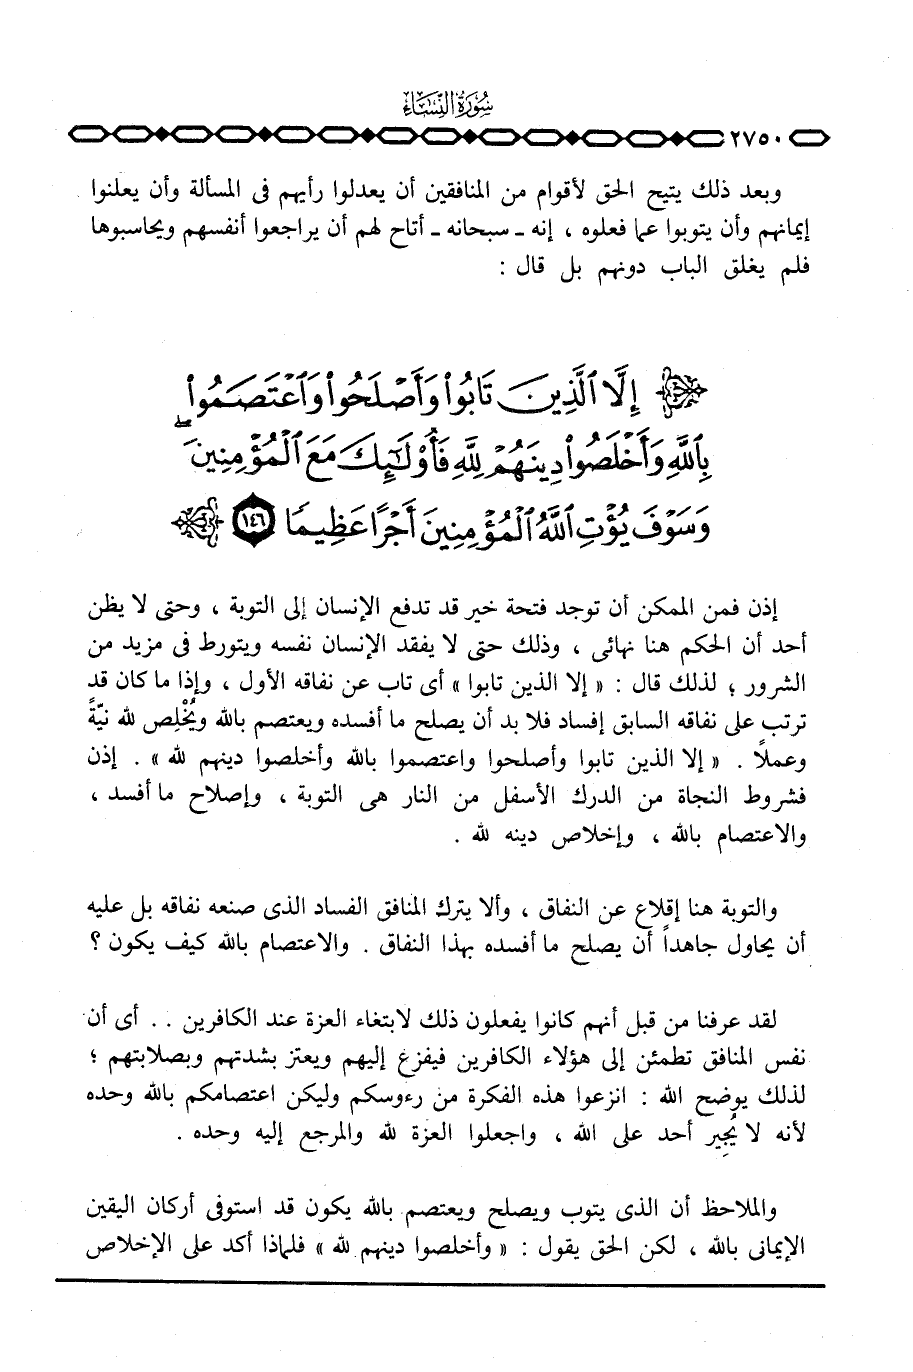 سُورَةُ النِّسَاءِ
٢٧٥٠
وبعد ذلك يتيح الحق لأقوام من المنافقين أن يعدلوا رأيهم فى المسألة وأن يعلنوا
إيمانهم وأن يتوبوا عما فعلوه ، إنه ـ سبحانه ـ أتاح لهم أن يراجعوا أنفسهم ويحاسبوها
فلم يغلق الباب دونهم بل قال :
إِلَّا ٱلَّذِينَ تَابُوا۟ وَأَصْلَحُوا۟ وَٱعْتَصَمُوا۟
بِٱللَّهِ وَأَخْلَصُوا۟ دِينَهُمْ لِلَّهِ فَأُو۟لَٰٓئِكَ مَعَ ٱلْمُؤْمِنِينَ ۖ
وَسَوْفَ يُؤْتِ ٱللَّهُ ٱلْمُؤْمِنِينَ أَجْرًا عَظِيمًا ١٤٦
إذن فمن الممكن أن توجد فتحة خير قد تدفع الإنسان إلى التوبة ، وحتى لا يظن
أحد أن الحكم هنا نهائى ، وذلك حتى لا يفقد الإنسان نفسه ويتورط فى مزيد من
الشرور ؛ لذلك قال : « إلا الذين تابوا » أى تاب عن نفاقه الأول ، وإذا ما كان قد
ترتب على نفاقه السابق إفساد فلا بد أن يصلح ما أفسده ويعتصم بالله ويُخْلِص لله نيّةً
وعملاً . « إلا الذين تابوا وأصلحوا واعتصموا بالله وأخلصوا دينهم لله » . إذن
فشروط النجاة من الدرك الأسفل من النار هى التوبة ، وإصلاح ما أفسد ،
والاعتصام بالله ، وإخلاص دينه لله .
والتوبة هنا إقلاع عن النفاق ، وألا يترك المنافق الفساد الذى صنعه نفاقه بل عليه
أن يحاول جاهداً أن يصلح ما أفسده بهذا النفاق . والاعتصام بالله كيف يكون ؟
لقد عرفنا من قبل أنهم كانوا يفعلون ذلك لابتغاء العزة عند الكافرين . . أى أن
نفس المنافق تطمئن إلى هؤلاء الكافرين فيفزع إليهم ويعتز بشدتهم وبصلابتهم ؛
لذلك يوضح الله : انزعوا هذه الفكرة من رءوسكم وليكن اعتصامكم بالله وحده
لأنه لا يُجِير أحد على الله ، واجعلوا العزة لله والمرجع إليه وحده .
والملاحظ أن الذى يتوب ويصلح ويعتصم بالله يكون قد استوفى أركان اليقين
الإيمانى بالله ، لكن الحق يقول : « وأخلصوا دينهم لله » فلماذا أكد على الإخلاص